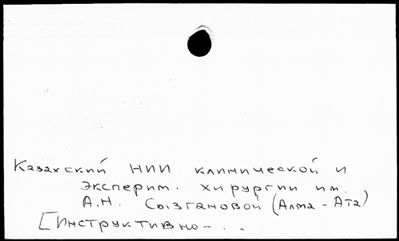 Казахский НИИ клинической и
эксперим. хирургии им.
А.Н. Сызгановой (Алма-Ата)
[Инструктивно-..